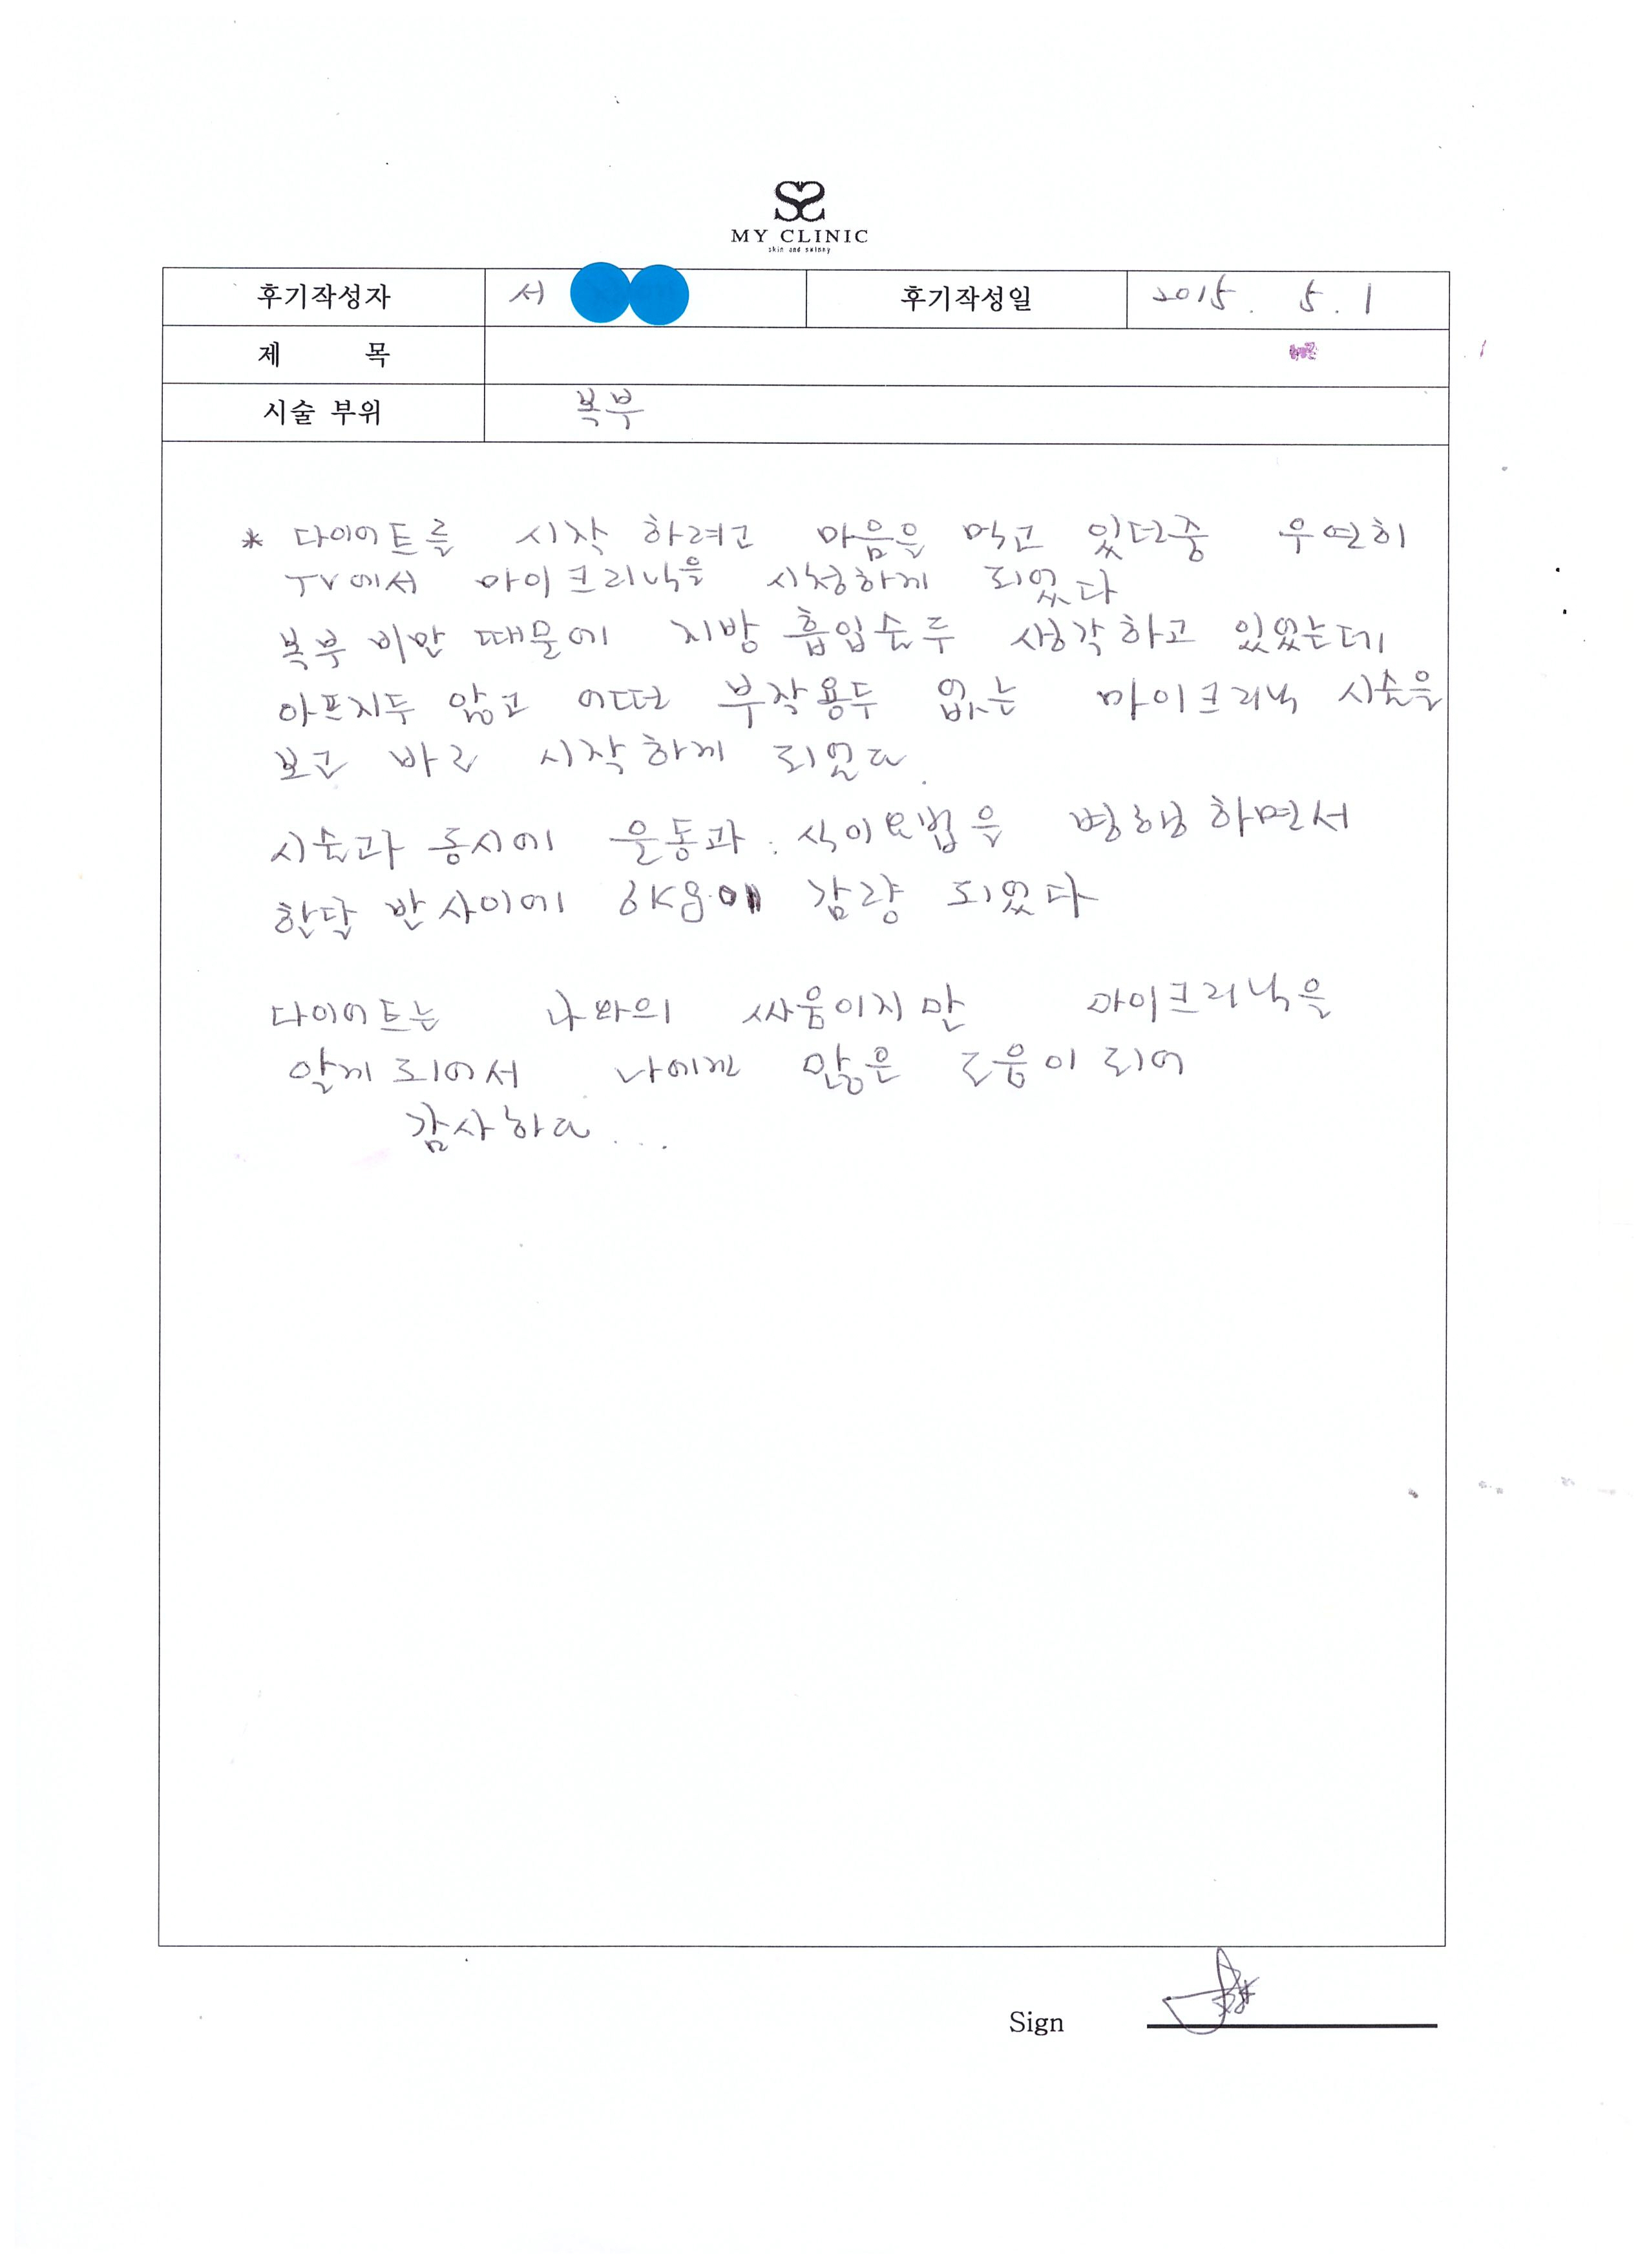 MY CLINIC
skin and skinny
후기작성자 서 후기작성일 2015. 5. 1
제 목
시술 부위 복부
* 다이어트를 시작 하려고 마음을 먹고 있던중 우연히
TV에서 마이크리닉을 시청하게 되었다
복부 비만 때물에 지방 흡입술두 생각하고 있었는데
아프지두 않고 어떠 부작용두 없는 마이크리닉 시술을
보고 바로 시작하게 되었다.
시술과 동시에 운동과. 식이요법을 병행하면서
한달 반 사이에 6Kg이 감량 되었다
다이어트는 나와의 싸움이지만 마이크리닉을
알게 되어서 나에겐 많은 도움이 되어
감사하다....
Sign